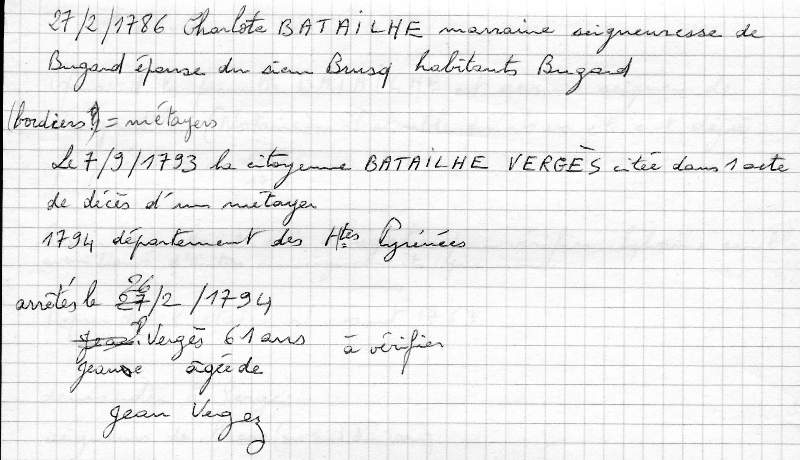 27/2/1786 Charlote BATAILHE marraine seigneuresse de
Bugard épouse du sieur Brusq habitants Bugard
(bordiers ?) = métayers
Le 7/9/1793 la citoyenne BATAILHE VERGÈS citée dans 1 acte
de décès d'un métayer
1794 département des Htes Pyrénées
26
arrêtés le 27/2/1794
Jean ? Vergès 61 ans à vérifier
Jeanne âgée de
Jean Vergez